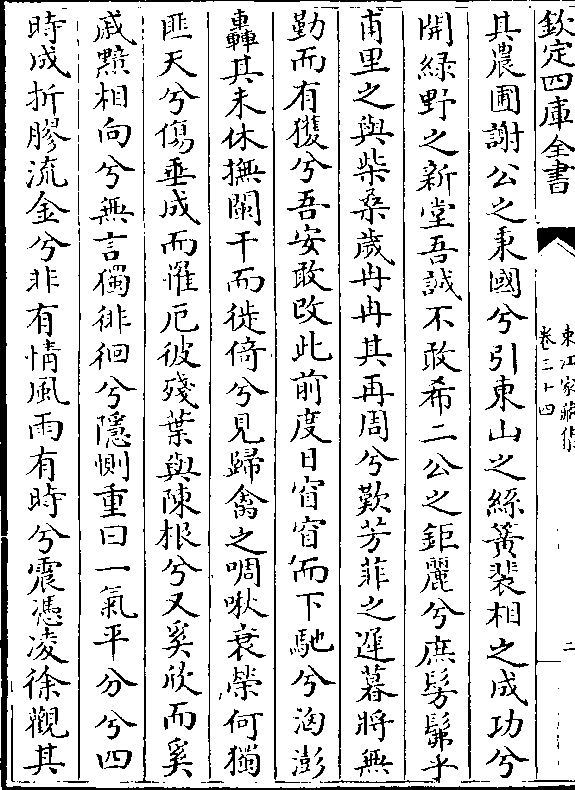 欽定四庫全書
東江家藏集
卷三十四
二
其農圃謝公之秉國兮引東山之絲簧裴相之成功兮
開綠野之新堂吾誠不敢希二公之鉅麗兮庶髣髴乎
甫里之與柴桑歲冉冉其再周兮歎芳菲之遲暮將無
勤而有獲兮吾安敢改此前度日窅窅而下馳兮洶澎
轟其未休撫闌干而徙倚兮見歸禽之啁啾衰榮何獨
匪天兮傷垂成而罹厄彼殘葉與陳根兮又奚欣而奚
戚黙相向兮無言獨徘徊兮隱惻重曰一氣平分兮四
時成折膠流金兮非有情風雨有時兮震憑凌徐觀其